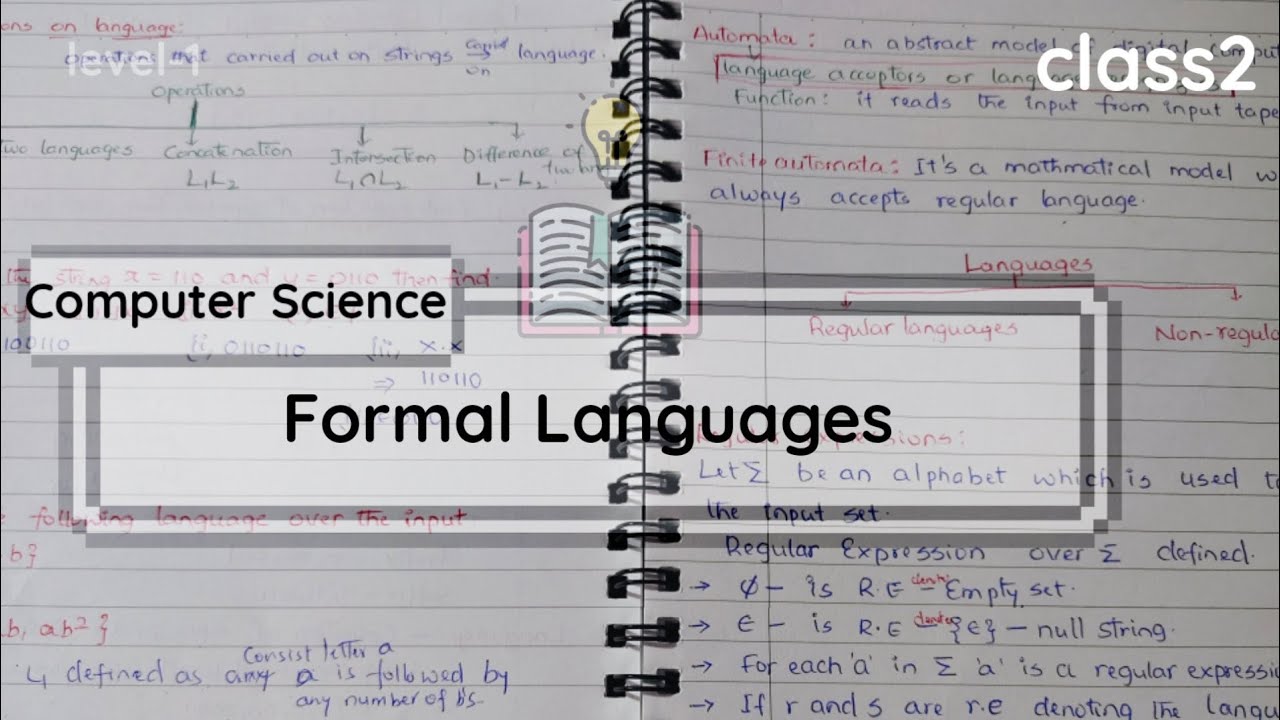 ons on language:
level-1
operations that carried out on strings carried on language.
operations
two languages Concatenation Intersection Difference of
L₁L₂ L₁∩L₂ L₁-L₂
string x = 110 and y = 0110 then find
Computer Science
100110 ii, 0110110 iii, x.x
⇒ 110110
Formal Languages
following language over the input
b}
b, ab²}
Consist letter a
↳ defined as any a is followed by
any number of b's.
class2
Automata: an abstract model of digital comput
language acceptors or language
Function: it reads the input from input tape
Finite automata: It's a mathmatical model w
always accepts regular language.
Languages
Regular languages Non-regula
Let Σ be an alphabet which is used to
the input set.
Regular Expression over Σ defined.
→ ϕ - is R.E denote Empty set.
→ ϵ - is R.E denotes {ϵ} - null string.
→ For each 'a' in Σ 'a' is a regular expressio
→ If r and s are r.e denoting the langu